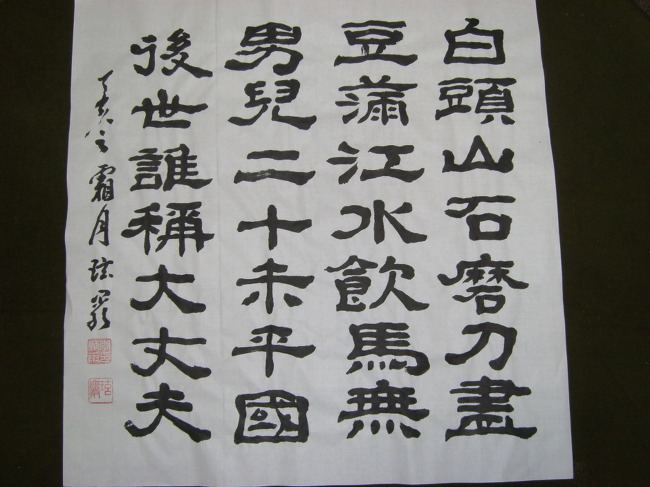 白頭山石磨刀盡
豆滿江水飮馬無
男兒二十未平國
後世誰稱大丈夫
丁亥之霜月